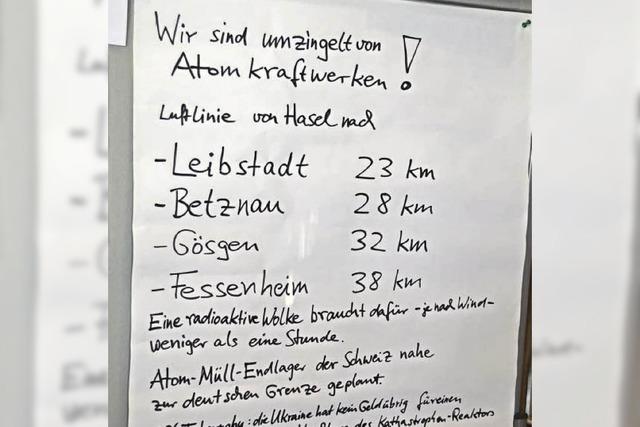 Wir sind umzingelt von
Atomkraftwerken!
Luftlinie von Hasel nach
- Leibstadt 23 km
- Betznau 28 km
- Gösgen 32 km
- Fessenheim 38 km
Eine radioaktive Wolke braucht dafür - je nach Wind -
weniger als eine Stunde.
Atom-Müll-Endlager der Schweiz nahe
zur deutschen Grenze geplant.
: die Ukraine hat kein Geld übrig für einen
des Katastrophen-Reaktors